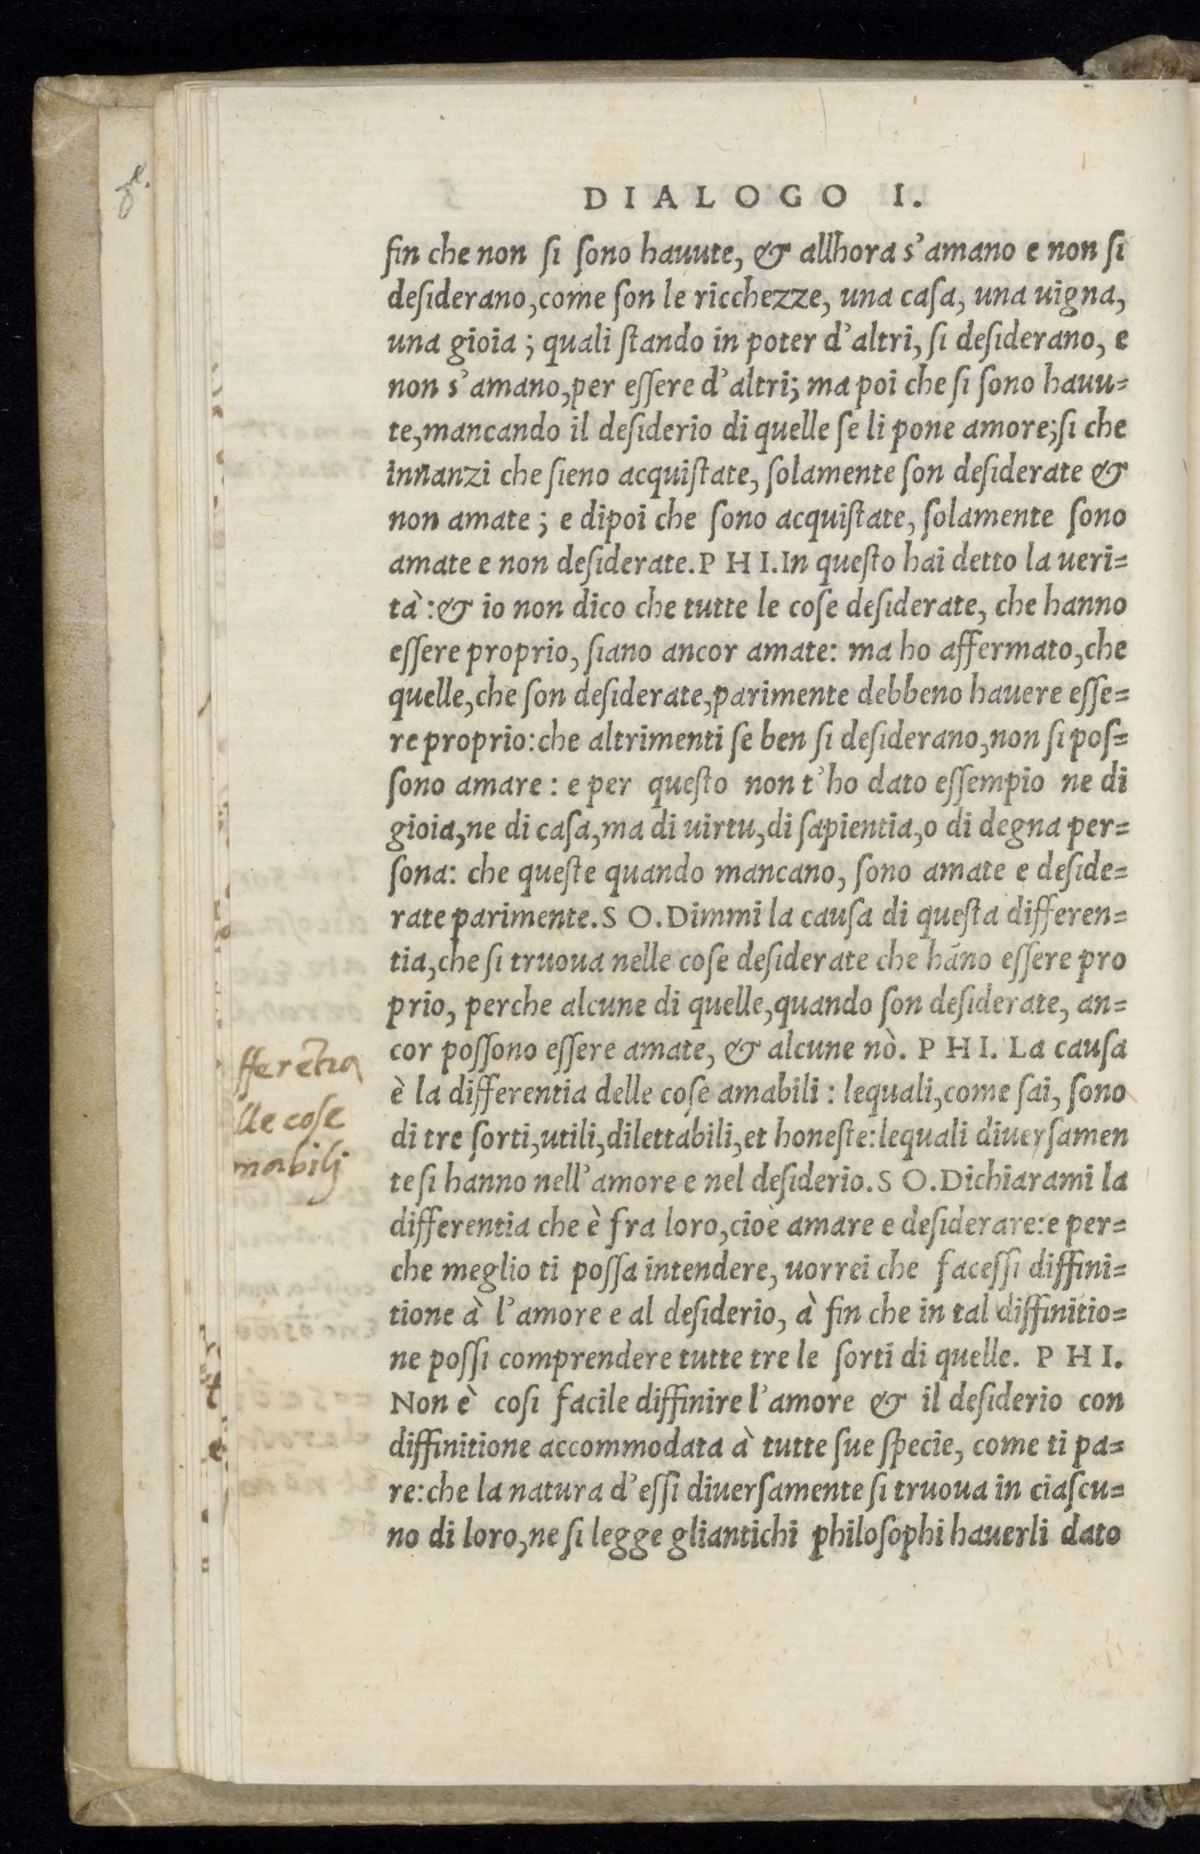 DIALOGO I.
fin che non si sono hauute, & allhora s'amano e non si
desiderano,come son le ricchezze, una casa, una uigna,
una gioia ; quali stando in poter d'altri, si desiderano, e
non s'amano,per essere d'altri; ma poi che si sono hauu=
te,mancando il desiderio di quelle se li pone amore;si che
innanzi che sieno acquistate, solamente son desiderate &
non amate ; e dipoi che sono acquistate, solamente sono
amate e non desiderate.PHI.In questo hai detto la ueri=
tà :& io non dico che tutte le cose desiderate, che hanno
essere proprio, siano ancor amate: ma ho affermato,che
quelle,che son desiderate,parimente debbeno hauere esse=
re proprio:che altrimenti se ben si desiderano,non si pos=
sono amare : e per questo non t'ho dato essempio ne di
gioia,ne di casa,ma di uirtu,di sapientia,o di degna per=
sona: che queste quando mancano, sono amate e deside=
rate parimente.SO.Dimmi la causa di questa differen=
tia,che si truoua nelle cose desiderate che hāno essere pro
prio, perche alcune di quelle,quando son desiderate, an=
cor possono essere amate, & alcune nò. PHI. La causa
è la differentia delle cose amabili : lequali,come sai, sono
di tre sorti,utili,dilettabili,et honeste:lequali diuersamen
te si hanno nell'amore e nel desiderio.SO.Dichiarami la
differentia che è fra loro,cioè amare e desiderare:e per=
che meglio ti possa intendere, uorrei che facessi diffini=
tione à l'amore e al desiderio, à fin che in tal diffinitio=
ne possi comprendere tutte tre le sorti di quelle. PHI.
Non è cosi facile diffinire l'amore & il desiderio con
diffinitione accommodata à tutte sue specie, come ti pa=
re:che la natura d'essi diuersamente si truoua in ciascu=
no di loro,ne si legge gliantichi philosophi hauerli dato
fferētia
lle cose
mabilj